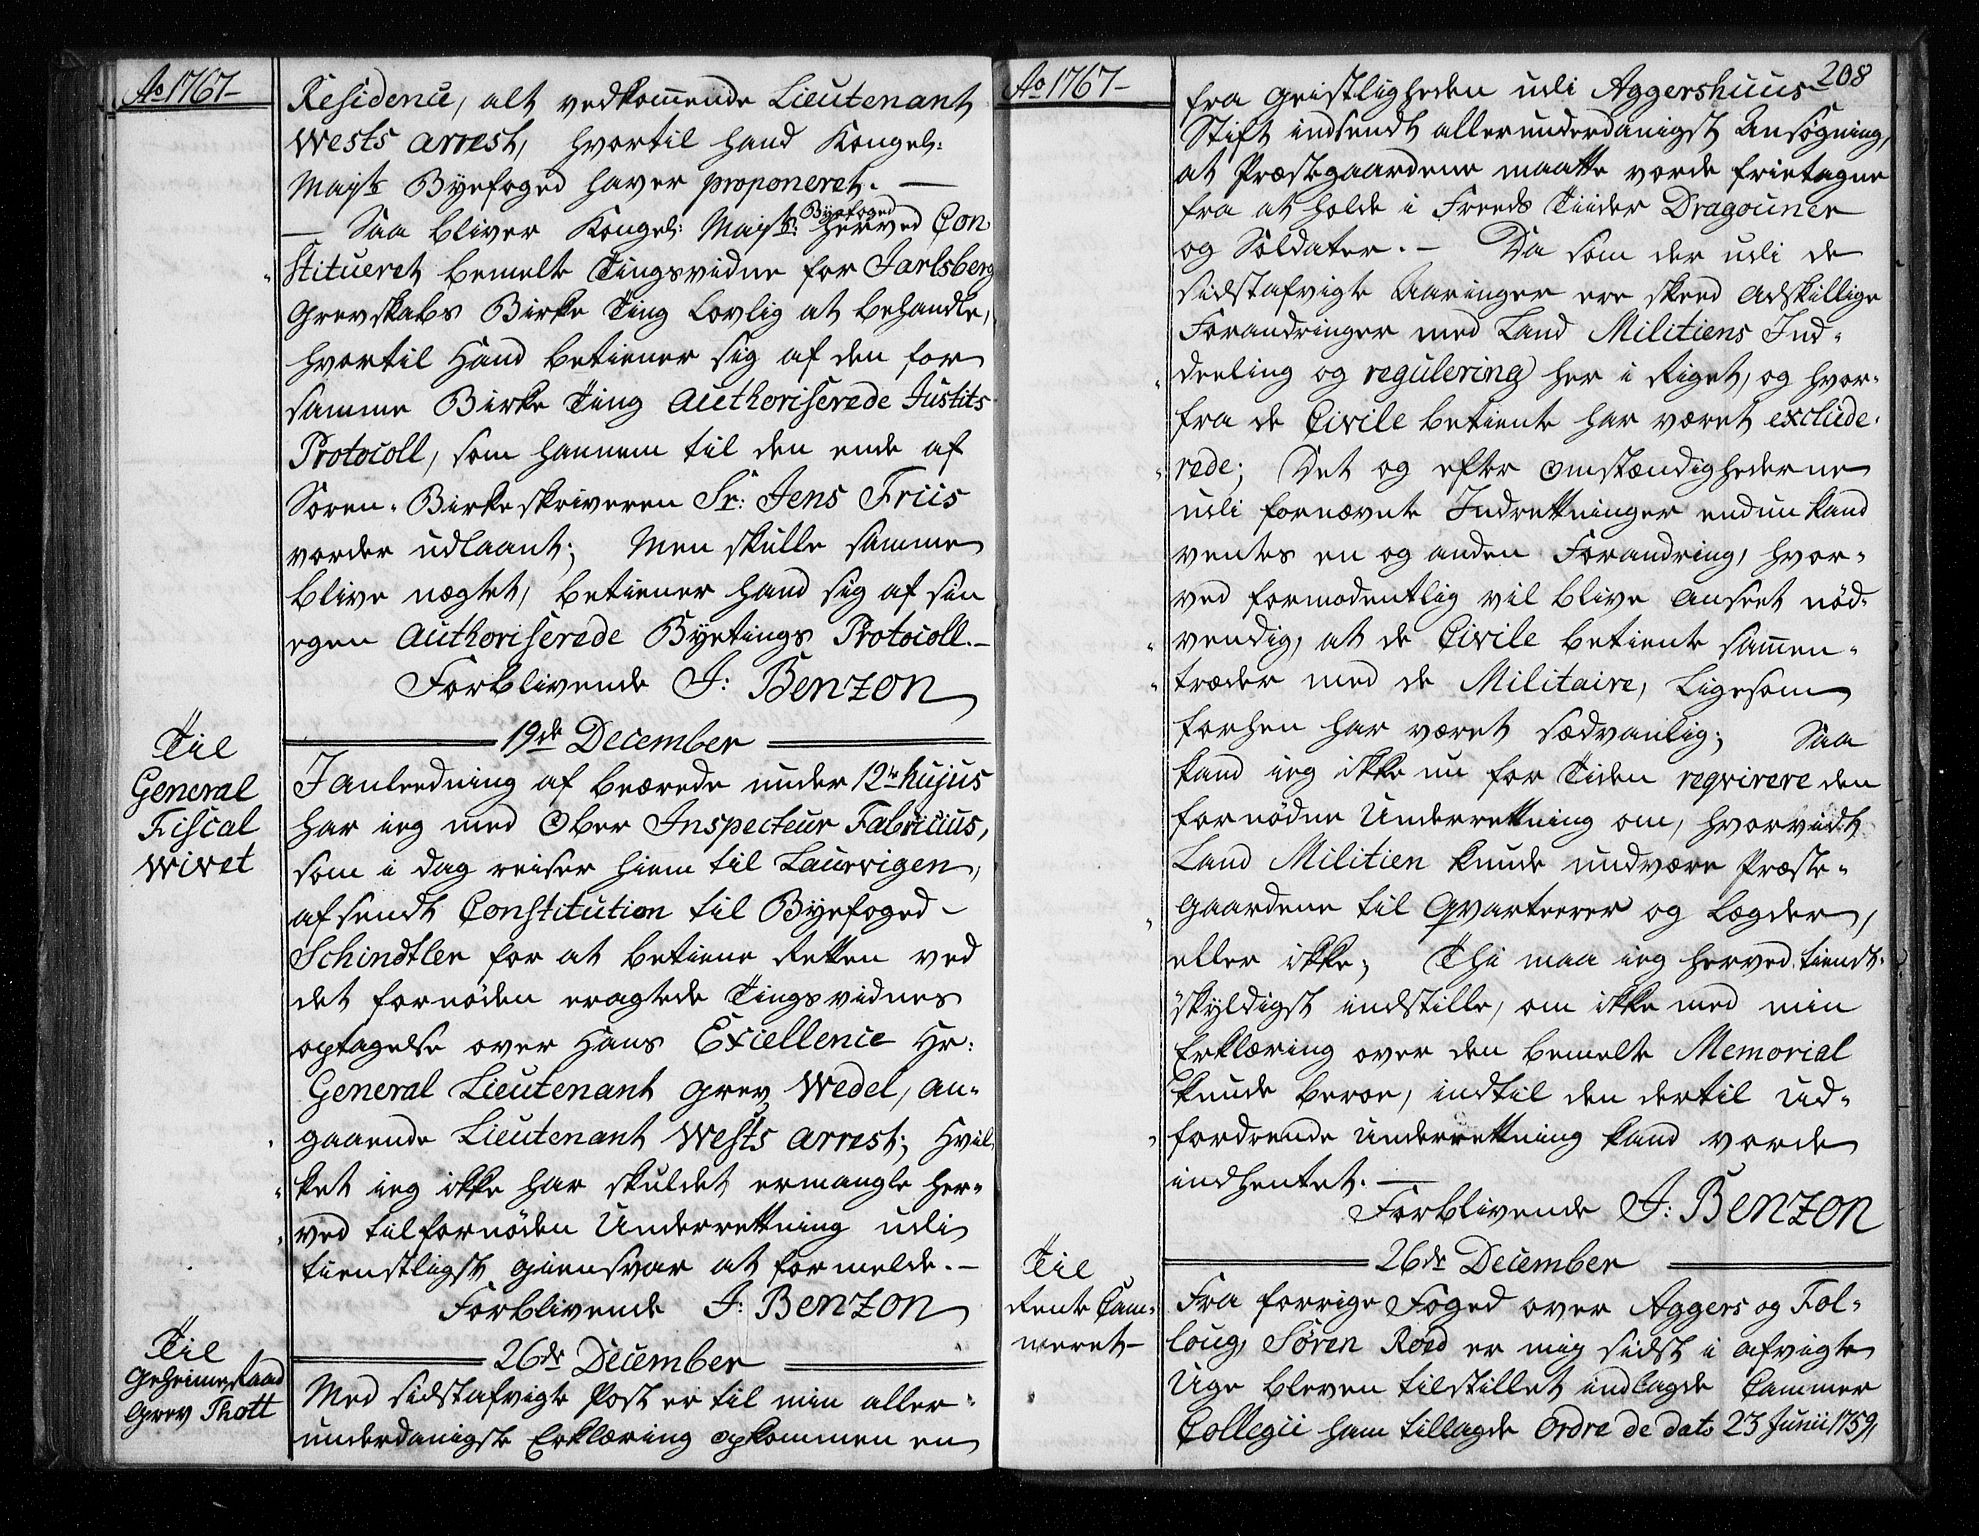 Ao 1767-
Residence, alt vedkommende Lieutenant
Wests arrest, hvortil hand Kongel:
Mayts Byefoged haver proponeret. —
— Saa bliver Kongel: Mayts: Byefoged herved Con
stitueret bemelte Tingsvidne for Jarlsberg
Grevskabs Birke Ting lovlig at behandle,
hvortil Hand betiener sig af den for
samme Birke Ting Authoriserede Justits
Protocoll, som hannem til den ende af
Soren-Birkeskriveren Sr: Jens Friis
vorder udlaant; Men skulle samme
blive nægtet, betiener hand sig af sin
egen Authoriserede Byetings Protocoll.-
Forblivende J: Benzon
Til
General
Fiscal
Wivet
19de December
I anleedning af beærede under 12te hujus
har ieg med Ober Inspecteur Fabricius,
som i dag reiser hiem til Laurvigen,
afsendt Constitution til Byefoged-
Schindtler for at betiene Retten ved
det fornöden eragtede Tingsvidnes
optagelse over Hans Excellence Hr:
General Lieutenant Grev Wedel, an-
gaaende Lieutenant Wests Arrest; Hvil
ket ieg ikke har skuldet ermangle her-
ved til fornöden Underrettning udi
tienstligst giensvar at formelde.-
Forblivende J: Benzon
Til
Geheimeraad
Grev Thott
26de December
Med sidstafvigte Post er til min aller-
underdanigste Erklæring opkommen en
Ao 1767-
208
fra Geistligheden udi Aggershuus
Stift indsendt allerunderdanigst Ansøgning,
at Præstegaardene maatte vorde frietagne
fra at holde i Freeds Tiider Dragouner
og Soldater.- Da som der udi de
sidstafvigte Aaringer ere skeed adskillige
Forandringer med Land Militiens Ind-
deeling og regulering her i Riget, og hvor-
fra de Civile betiente har været exclude-
rede; Det og efter omstændighederne
udi fornævnte Indrettninger endnu kand
ventes en og anden Forandring, hvor-
ved formodentlig vil blive anseet nöd-
vendig, at de Civile betiente sammen-
træder med de Militaire, Ligesom
forhen har været sædvanlig; Saa
kand ieg ikke nu for Tiden reqvirere den
fornödne Underrettning om, hvorvidt
Land Militien kunde undvære Præste-
gaardene til Qvarteerer og Lægder,
eller ikke; Thi maa ieg herved tienst-
skyldigst indstille, om ikke med min
Erklæring over den bemelte Memorial
kunde beroe, indtil den dertil ud-
fordrende underrettning kand vorde
indhentet. —
Forblivende J: Benzon
Til
Rente Cam-
meret-
26de December
Fra forrige Foged over Aggers og Fol-
loug, Sören Roed er mig sidst i afvigte
Uge bleven tilstillet indlagde Cammer
Collegii ham tillagde Ordre de dato 23 Junii 1759,